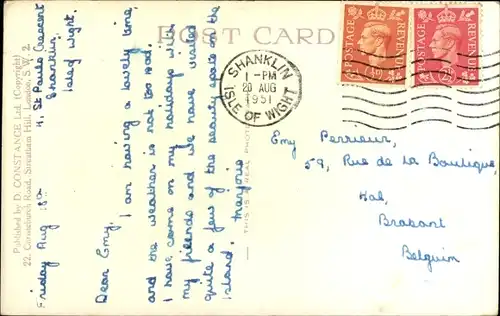 POST CARD
41, St Pauls Crescent
Shanklin,
Isle of Wight.
Friday Aug 18th
Dear Emy,
I am having a lovely time
and the weather is not too bad.
I have come on my holidays with
my friends and we have visited
quite a few of the beauty spots on the
Island.
Marjorie
Published by D. CONSTANCE Ltd. (Copyright)
THIS IS A REAL PHOTO
SHANKLIN
1 - PM
20 AUG
1951
ISLE OF WIGHT
POSTAGE REVENUE
POSTAGE REVENUE
Emy Perrieur,
59, Rue de la Boutique,
Hal,
Brabant
Belgium